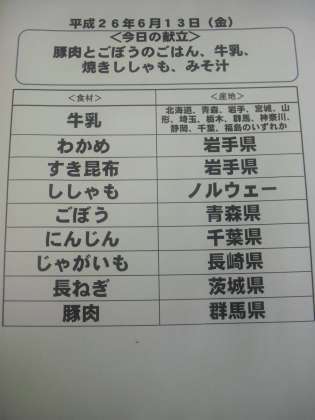 平成26年6月13日（金）
＜今日の献立＞
豚肉とごぼうのごはん、牛乳、
焼きししゃも、みそ汁
＜食材＞ ＜産地＞
牛乳 北海道、青森、岩手、宮城、山
形、埼玉、栃木、群馬、神奈川、
静岡、千葉、福島のいずれか
わかめ 岩手県
すき昆布 岩手県
ししゃも ノルウェー
ごぼう 青森県
にんじん 千葉県
じゃがいも 長崎県
長ねぎ 茨城県
豚肉 群馬県